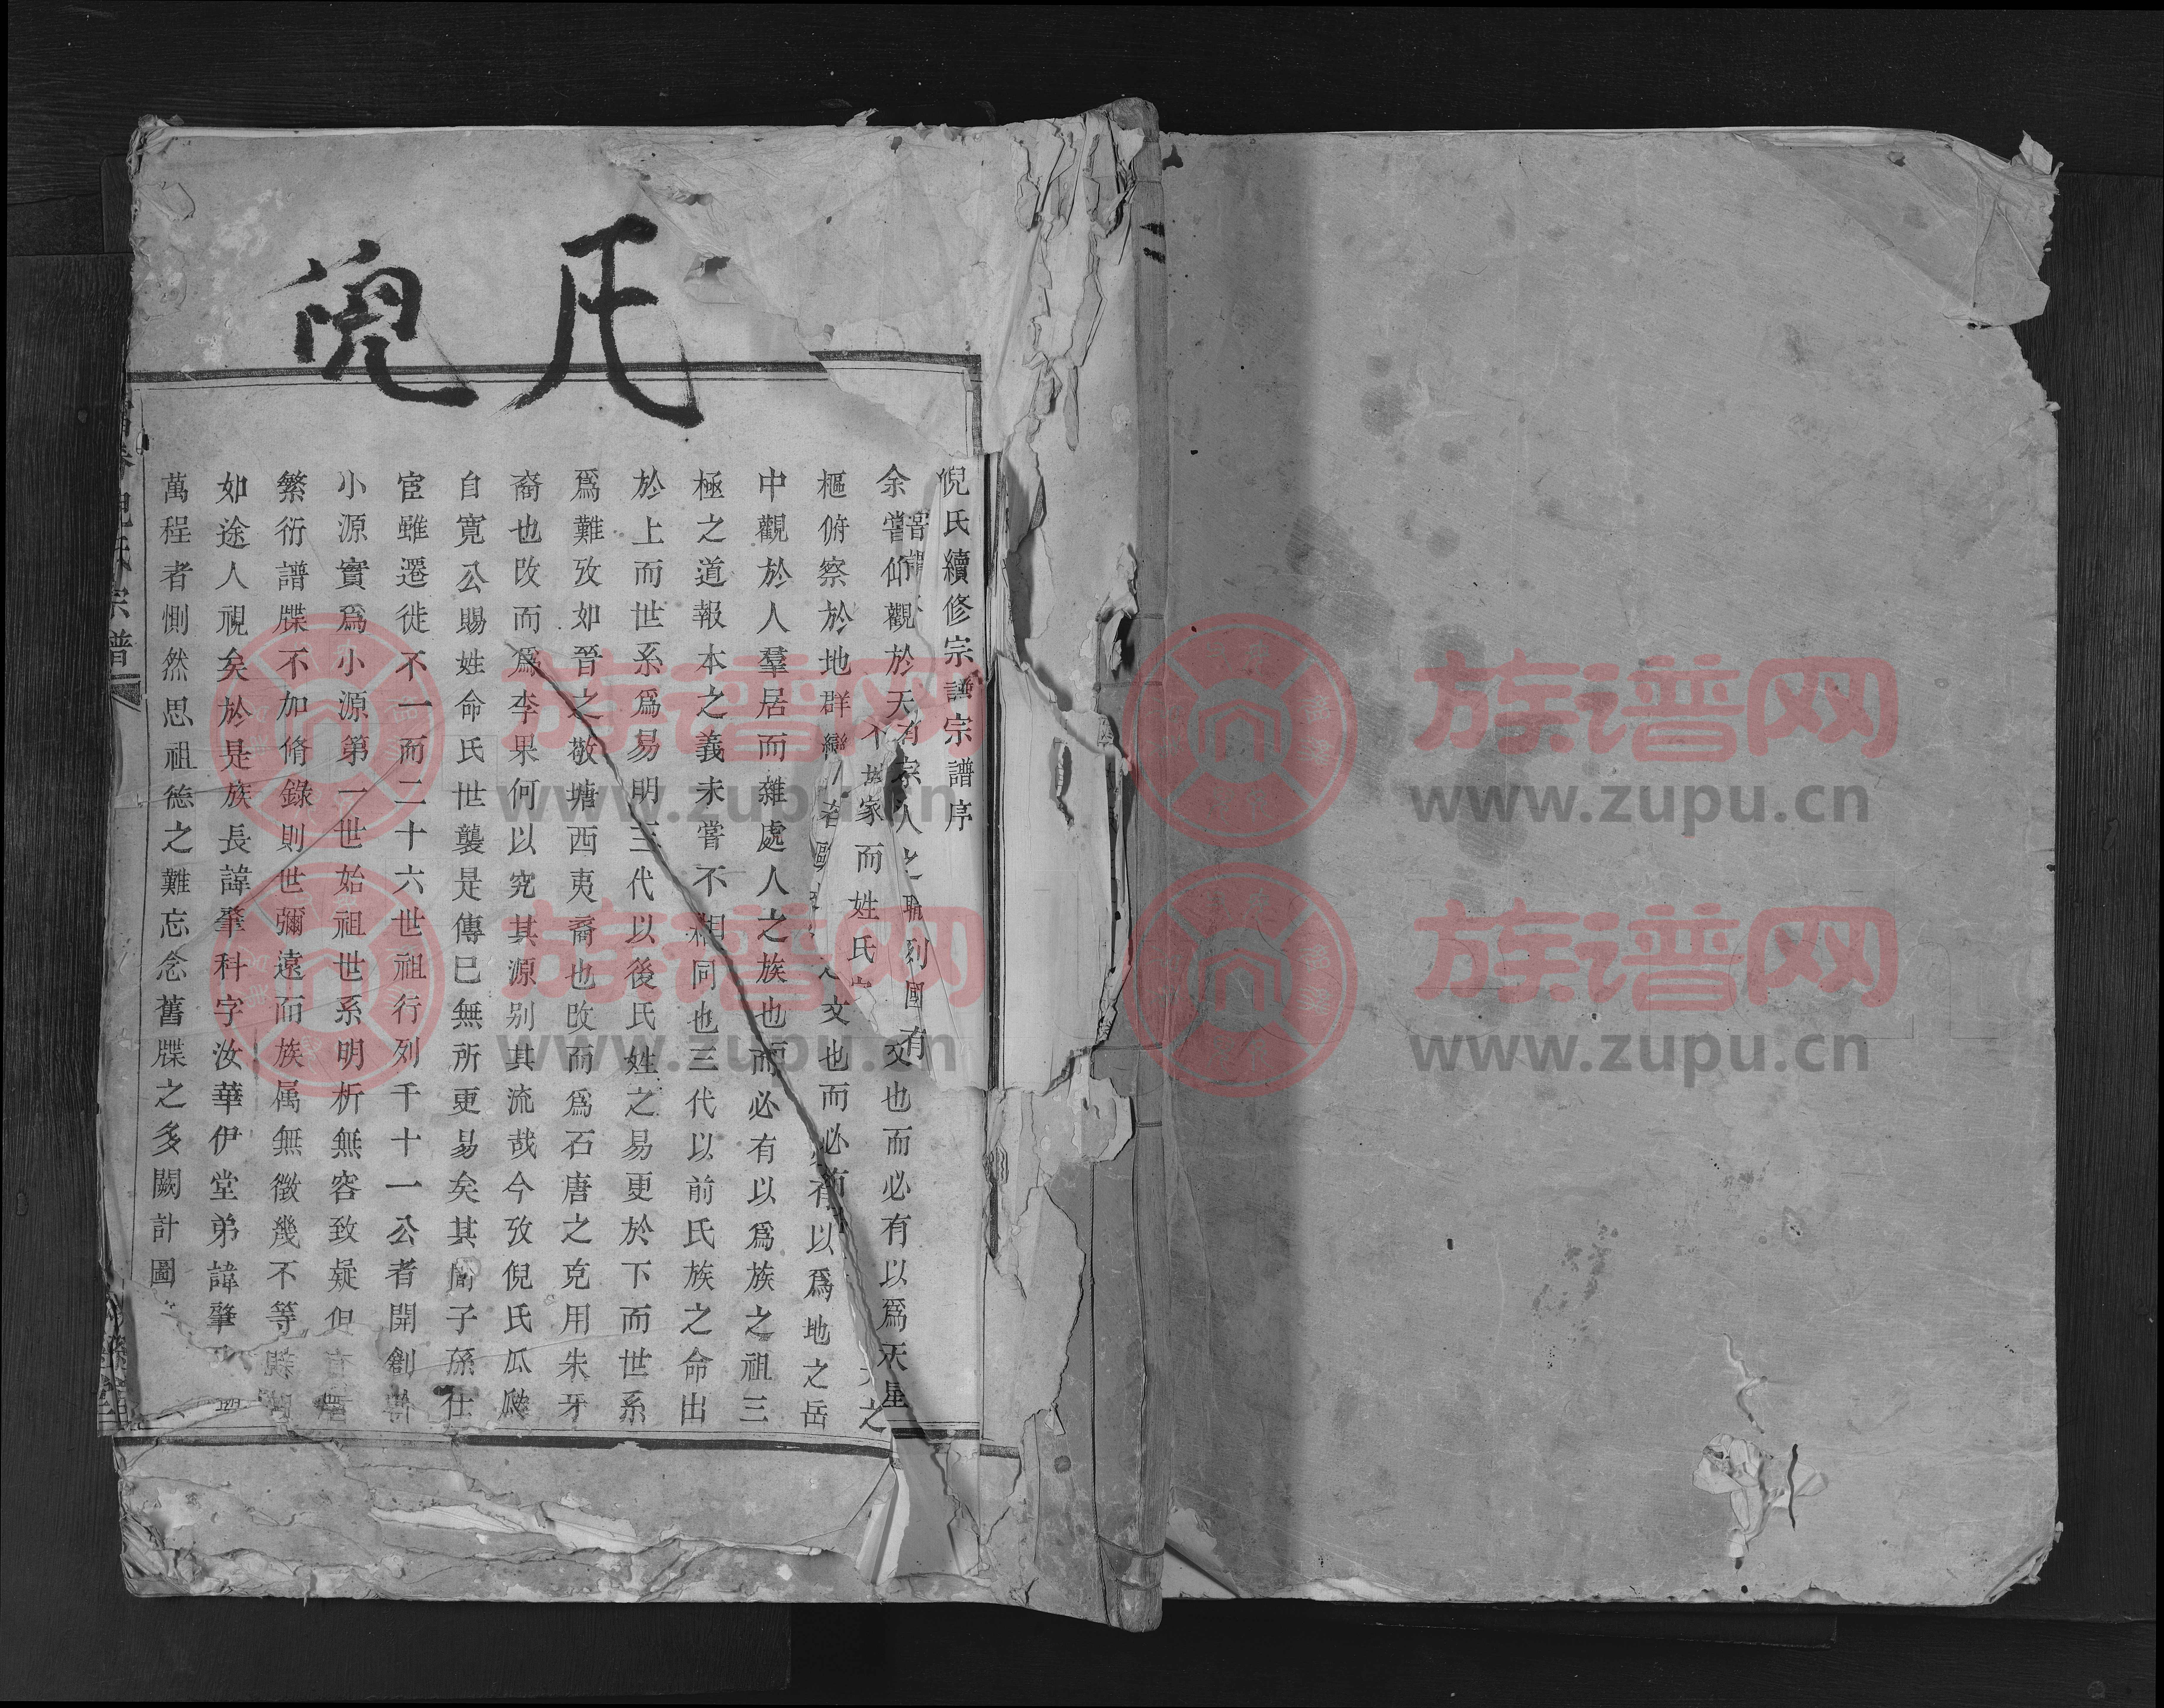 倪氏
倪氏續修宗譜宗譜序
余嘗仰觀於天 文也而必有以爲天星之
樞俯察於地群巒 文也而必有以爲地之岳
中觀於人羣居而雜處人之族也而必有以爲族之祖三
極之道報本之義未嘗不相同也三代以前氏族之命出
於上而世系爲易明三代以後氏姓之易更於下而世系
爲難攷如晉之敬塘西夷裔也改而爲石唐之克用朱牙
裔也改而爲李果何以究其源别其流哉今攷倪氏瓜瓞
自寛公賜姓命氏世襲是傳已無所更易矣其間子孫仕
宦雖遷徙不一而二十六世祖行列千十一公者開創
小源實爲小源第一世始祖世系明析無容致疑但
繁衍譜牒不加脩錄則世彌遠而族属無徵幾不等
如途人視矣於是族長諱肇科字汝華伊堂弟諱肇
萬程者惻然思祖德之難忘念舊牒之多闕計圖
倪氏宗譜
有宗人之 列國有
家而姓氏
族谱网
www.zupu.cn
族谱网
www.zupu.cn
族谱网
www.zupu.cn
族谱网
www.zupu.cn